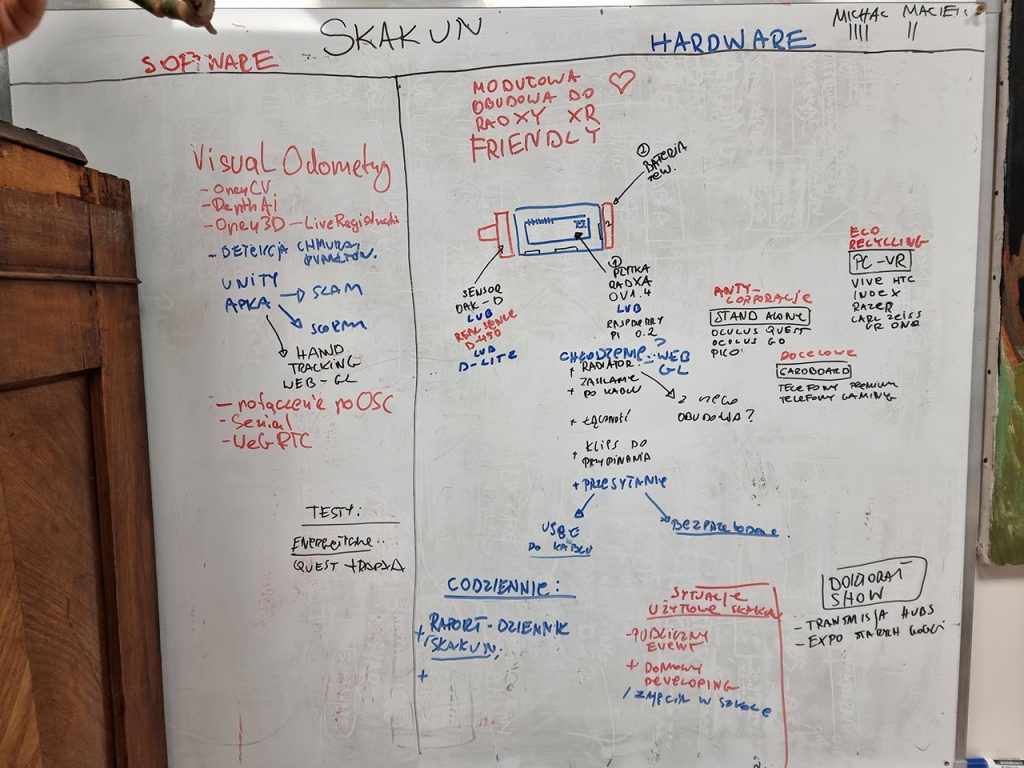 SKAKUN
MICHAŁ MACIEJ
IIII II
SOFTWARE
HARDWARE
Visual Odometry
- OpenCV
- DepthAi
- Open3D - Live
- DETEKCJA CHMURA,
PUNKTÓW.
UNITY
APKA → SLAM
HAND
TRACKING
WEB-GL
- połączenie po OSC
- Serial
- WebRTC
TESTY:
QUEST +
MODUŁOWA
OBUDOWA DO
RADXY XR
FRIENDLY
② BATERIA
2
①
PŁYTKA
RADXA
LUB
RASPBERRY
PI 0.2
SENSOR
OAK-D
LUB
REALSENSE
D-450
LUB
D-LITE
CHŁODZENIE
WEB
GL
?
+ RADIATOR
+
DO KABLU
OBUDOWA?
+ ŁĄCZNOŚĆ
+ KLIPS DO
PRZYPINANIA
+ PRZESYŁANIE
USB C
DO KABLU
ANTY-
CORPORACJE
STAND ALONE
OCULUS QUEST
OCULUS GO
PICO
ECO
RECYCLING
PC-VR
VIVE HTC
INDEX
RAZER
CARL ZEISS
VR ONE
DOCELOWE
CARDBOARD
TELEFONY PREMIUM
TELEFONY GAMING
CODZIENNIE:
+ RAPORT-DZIENNIK
SKAKUN,
+
SYTUACJE
UŻYTOWE SKAKUN
- PUBLICZNY
EVENT
+ DOMOWY
DEVELOPING
/ ZAJĘCIA W SZKOLE
DOKTORAT
SHOW
- TRANSMISJA HUBS
- EXPO STARYCH